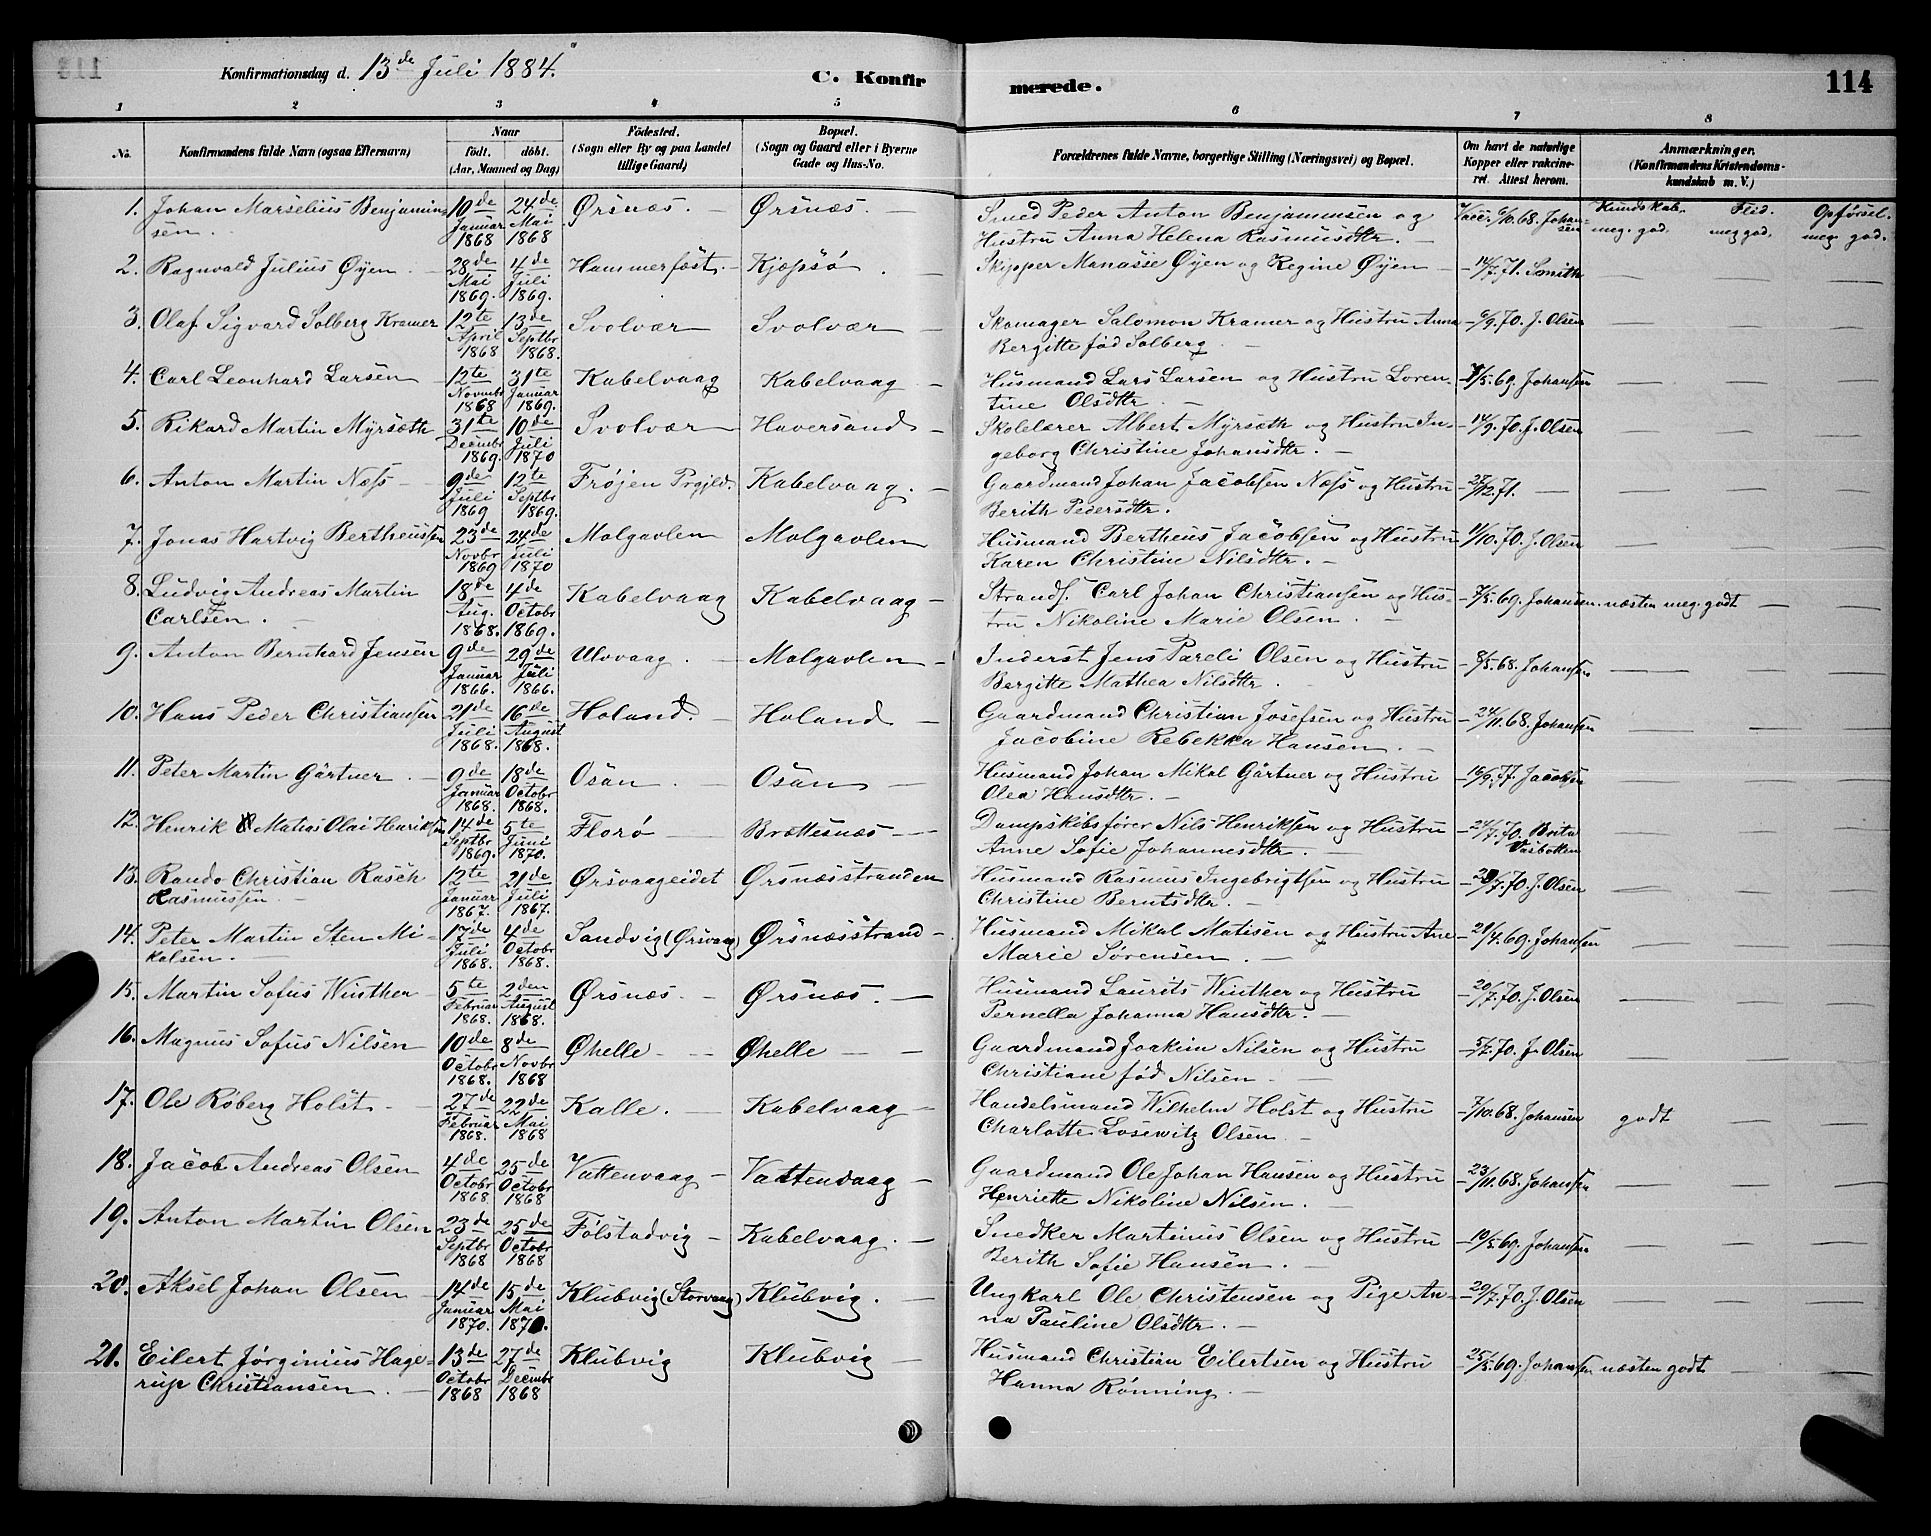 Konfirmationsdag d. 13de Juli 1884.
C. Konfirmerede.
114
1 2 3 4 5 6 7 8
No.
Konfirmandens fulde Navn (ogsaa Efternavn)
Naar
födt. döbt.
(Aar, Maaned og Dag)
Födested.
(Sogn eller By og paa Landet
tillige Gaard)
Bopæl.
(Sogn og Gaard eller i Byerne
Gade og Hus-No.
Forældrenes fulde Navne, borgerlige Stilling (Næringsvei) og Bopæl.
Om havt de naturlige
Kopper eller vakcine-
ret. Attest herom.
Anmærkninger.
(Konfirmandens Kristendoms-
kundskab m. V.)
1. Johan Marselius Benjamin- 10de 24de Ørsnæs. — Ørsnæs. — Smed Peder Anton Benjaminsen og Vacc. 6/10.68. Johan- Kundskab. Flid. Opførsel.
sen. Januar Mai Hustru Anna Helena Rasmusdtr. — sen meg. god. meg god. meg. god.
1868 1868
2. Ragnvald Julius Øyen — 28de 4de Hammerfest. — Kjøpsø — Skipper Manasse Øyen og Regine Øyen — 14/7.71. Smith — — —
Mai Juli
1869. 1869.
3. Olaf Sigvard Solberg Kramer 12te 13de Svolvær Svolvær — Skomager Salomon Kramer og Hustru Anna — 6/9.70. J. Olsen — — —
April Septbr Bergitte fød Solberg. —
1868 1868.
4. Carl Leonhard Larsen — 12te 31te Kabelvaag Kabelvaag. — Husmand Lars Larsen og Hustru Loren- — 7/5.69. Johansen — — —
Novmbr Januar tine Olsdtr. —
1868 1869.
5. Rikard Martin Myrsæth 31te 10de Svolvær Haversand — Skolelærer Albert Myrsæth og Hustru In- — 14/9.70. J. Olsen — — —
Decmbr Juli geborg Christine Johansdtr. —
1869. 1870
6. Anton Martin Næss — 9de 12te Frøjen Prgjld. Kabelvaag. — Gaardmand Johan Jacobsen Næss og Hustru — 27/12.71. — — — —
Juli Septbr Berith Pedersdtr.
1869 1869.
7. Jonas Hartvig Bertheussen 23de 24de Molgavlen Molgavlen Husmand Bertheus Jacobsen og Hustru — 11/10.70. J. Olsen — — —
Novbr Juli Karen Christine Nilsdtr. —
1869 1870
8. Ludvig Andreas Martin 18de 4de Kabelvaag Kabelvaag — Strands. Carl Johan Christiansen og Hus- — 7/5.69. Johansen. næsten meg. godt — —
Carlsen. — Aug. Octobr tru Nikoline Marie Olsen. —
1868. 1869.
9. Anton Bernhard Jensen 9de 29de Ulvaag. — Molgavlen — Inderst Jens Pareli Olsen og Hustru — 8/5.68. Johansen — — —
Januar Juli Bergitte Mathea Nilsdtr.
1866. 1866.
10. Hans Peder Christiansen 21de 16de Holand. — Holand — Gaardmand Christian Josefsen og Hustru — 24/11.68. Johansen — — —
Juli August Jacobine Rebekka Hansen. —
1868. 1868.
11. Peter Martin Gärtner. — 9de 18de Osan. — Osan — Husmand Johan Mikal Gärtner og Hustru — 16/9.77. Jacobsen — — —
Januar Octobr Olea Hansdtr. —
1868. 1868.
12. Henrik Matias Olai Henriksen 14de 5te Florø — Brættesnæs — Dampskibsfører Nils Henriksen og Hustru — 24/7.70. Brita — — —
Septbr Juni Anne Sofie Johannesdtr. — Vasbotten
1869. 1870.
13. Rando Christian Rasch 12te 21de Ørsvaageidet Ørsnæsstranden Husmand Rasmus Ingebrigtsen og Hustru — 29/7.70. J. Olsen — — —
Rasmussen. — Januar Juli Christine Berntsdtr. —
1867. 1867.
14. Peter Martin Sten Mi- 17de 4de Sandvig (Ørsvaag) Ørsnæsstrand — Husmand Mikal Matisen og Hustru Ane — 21/4.69. Johansen — — —
kalsen. — Juli Octobr Marie Sørensen. —
1868. 1868.
15. Martin Sofus Winther 5te 2den Ørsnæs. — Ørsnæs. — Husmand Laurits Winther og Hustru — 20/7.70. J. Olsen — — —
Februar August Pernella Johanna Hansdtr. —
1868. 1868.
16. Magnus Sofus Nilsen — 10de 8de Øhelle — Øhelle — Gaardmand Joakim Nilsen og Hustru — 5/7.70. J. Olsen — — —
Octobr Novbr Christiane fød Nilsen. —
1868. 1868
17. Ole Røberg Holst. — 27de 22de Kalle. — Kabelvaag — Handelsmand Wilhelm Holst og Hustru — 7/10.68. Johansen godt — —
Februar Mai Charlotte Losewitz Olsen. —
1868. 1868
18. Jacob Andreas Olsen 4de 25de Vattenvaag — Vattenvaag — Gaardmand Ole Johan Hansen og Hustru — 23/11.68. Johansen — — —
Octobr Octobr Henriette Nikoline Nilsen. —
1868 1868
19. Anton Martin Olsen 23de 25de Følstadvig — Kabelvaag. — Snedker Martinus Olsen og Hustru — 10/5.69. Johansen — — —
Septbr Octobr Berith Sofie Hansen. —
1868 1868
20. Aksel Johan Olsen — 14de 15de Klubvig (Storvaag) Klubvig. — Ungkarl Ole Christensen og Pige An- — 20/7.70. J. Olsen — — —
Januar Mai na Pauline Olsdtr. —
1870. 1870.
21. Eilert Jørginius Hage- 13de 27de Klubvig Klubvig — Husmand Christian Eilertsen og Hustru — 25/5.69. Johansen næsten godt — —
rup Christiansen. — Octobr Decmbr Hanna Rønning. —
1868 1868